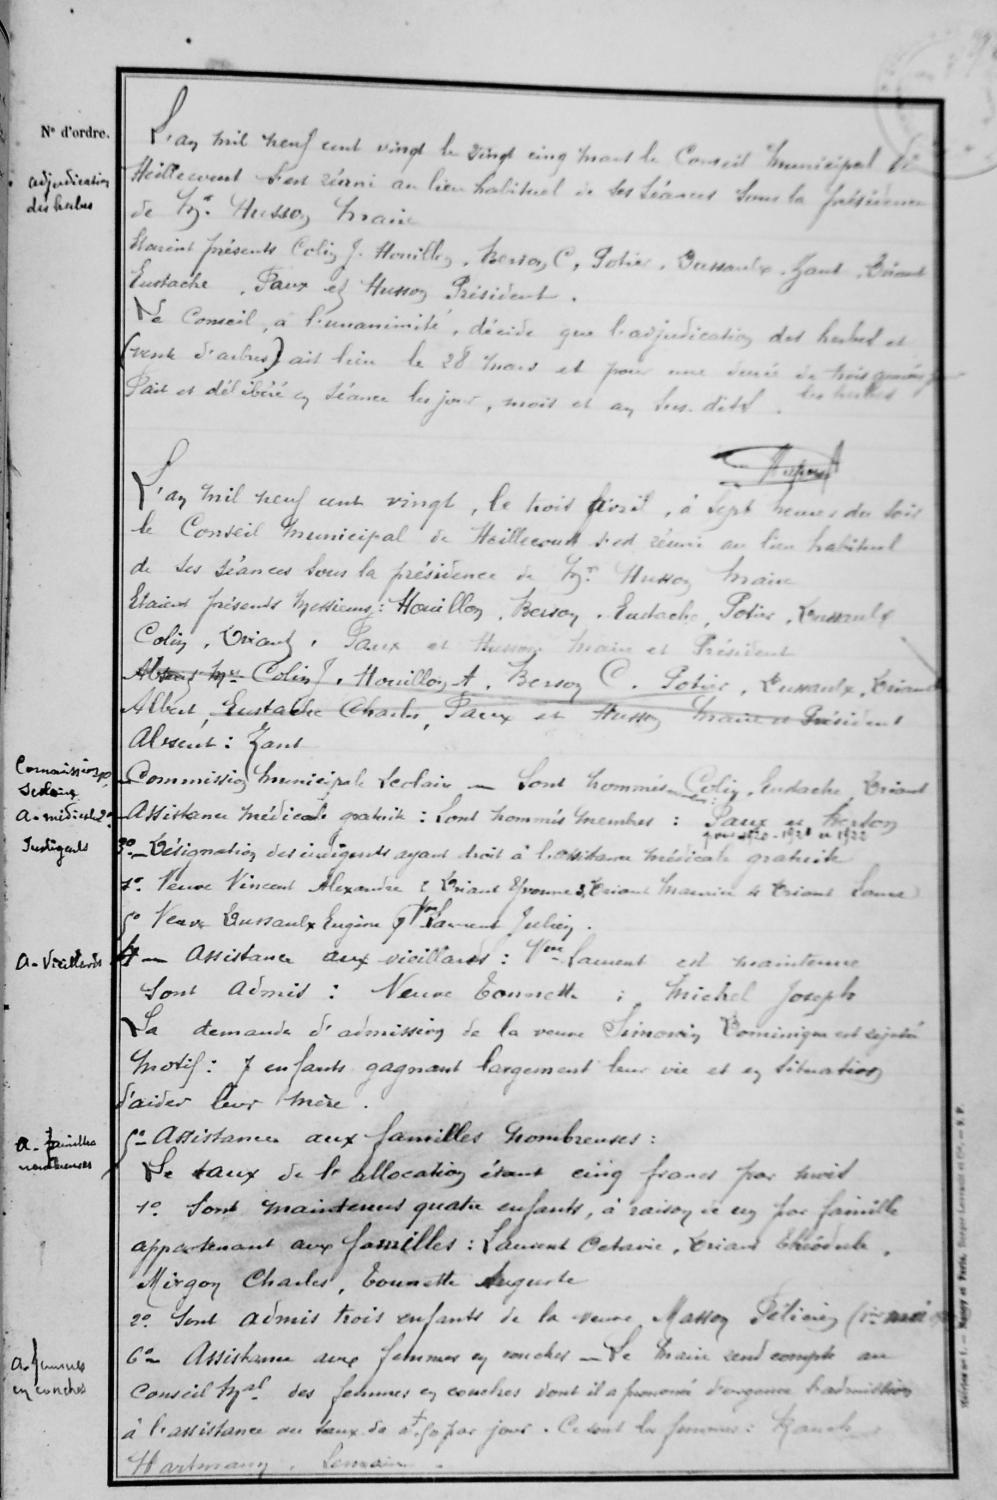 N° d'ordre.
adjudication
des herbes
L'an mil neuf cent vingt le vingt cinq mars le Conseil Municipal de
Heillecourt s'est réuni au lieu habituel de ses séances sous la présidence
de Mr. Husson Maire
Etaient présents Colin J. Houillon, Berson C, Potier, Dussaulx, Zant, Briant
Eustache, Paux et Husson Président.
Le Conseil, à l'unanimité, décide que l'adjudication des herbes et
(vente d'arbres) ait lieu le 28 mars et pour une durée de trois années pour
les herbes
Fait et délibéré en séance les jour, mois et an sus-dits.
L'an mil neuf cent vingt, le trois Avril, à sept heures du soir
le Conseil Municipal de Heillecourt s'est réuni au lieu habituel
de ses séances sous la présidence de Mr. Husson Maire
Etaient présents Messieurs: Houillon, Berson, Eustache, Potier, Dussaulx
Colin, Briant, Paux et Husson Maire et Président
Absents Mrs Colin J, Houillon A, Berson C. Potier, Dussaulx, Briant
Albert, Eustache Charles, Paux et Husson Maire et Président
Absent: Zant
Commission
Scolaire
Commission Municipale Scolaire — Sont nommés Colin, Eustache, Briant
A-médicale 2°
Assistance médicale gratuite: Sont nommés membres: Paux et Berson
1921 et 1922
Indigents
3°- Désignation des indigents ayant droit à l'assistance médicale gratuite
1° Veuve Vincent Alexandre 2 Briant Yvonne 3 Briant Maurice 4 Briant Laure
5° Veuve Dussaulx Eugène Vve Laurent Julien.
A-Vieillards
4 — Assistance aux vieillards: Vve Laurent est maintenue
Sont admis: Veuve Tonnette; Michel Joseph
La demande d'admission de la veuve Simonin Dominique est rejetée
Motif: 7 enfants gagnant largement leur vie et en situation
d'aider leur mère.
A-familles
nombreuses
5°- Assistance aux familles nombreuses:
Le taux de l'allocation étant cinq francs par mois
1° Sont maintenus quatre enfants, à raison de un par famille
appartenant aux familles: Laurent Octavie, Briant Théodule,
Mirgon Charles, Tonnette Auguste
2° Sont admis trois enfants de la veuve Masson Pélicien (1er mai
A-femmes
en couches
6°- Assistance aux femmes en couches — Le Maire rend compte au
Conseil Mal. des femmes en couches dont il a prononcé d'urgence l'admission
à l'assistance au taux de par jour. Ce sont les femmes:
Hartmann, Lemoine.